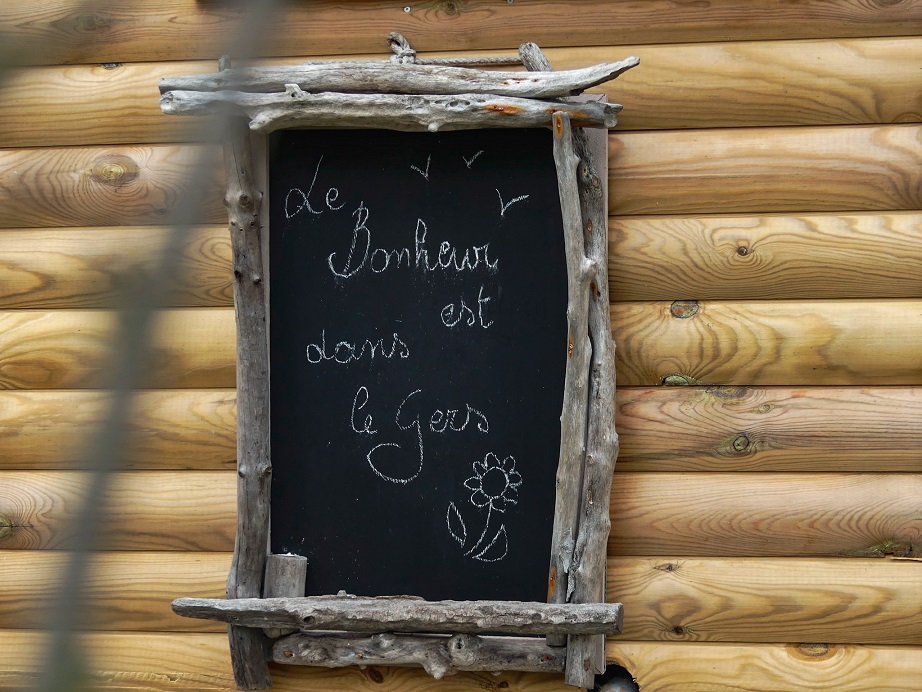 Le
Bonheur
est
dans
le Gers